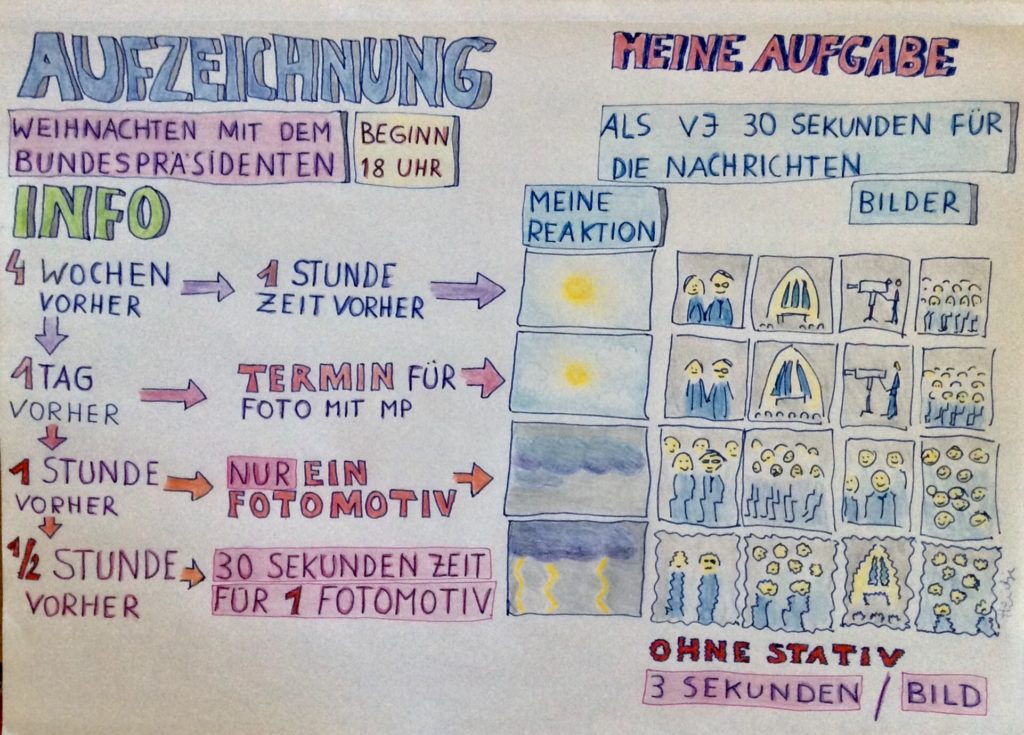 AUFZEICHNUNG
WEIHNACHTEN MIT DEM
BUNDESPRÄSIDENTEN
BEGINN
18 UHR
INFO
4 WOCHEN
VORHER
1 STUNDE
ZEIT VORHER
1 TAG
VORHER
TERMIN FÜR
FOTO MIT MP
1 STUNDE
VORHER
NUR EIN
FOTOMOTIV
1/2 STUNDE
VORHER
30 SEKUNDEN ZEIT
FÜR 1 FOTOMOTIV
MEINE AUFGABE
ALS VJ 30 SEKUNDEN FÜR
DIE NACHRICHTEN
MEINE
REAKTION
BILDER
OHNE STATIV
3 SEKUNDEN / BILD